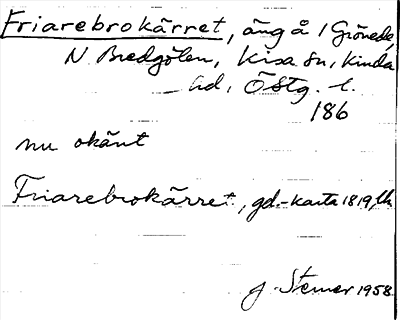 Friarebrokärret, äng å 1 Grönede,
N Bredgölen, Kisa sn, Kinda
hd, Östg. l.
186
nu okänt
Friarebrokärret, gd.-karta 1819,
J. Stemer 1958